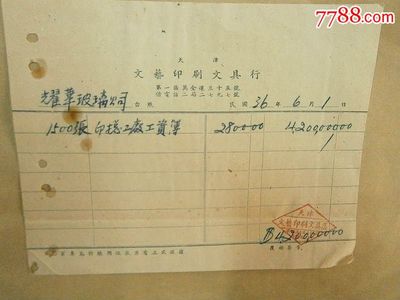 7788.com
天津
文藝印刷文具行
第一區萬全道三十五號
借電話二局二七九七號
耀華玻璃公司 台照 民國 36 年 6 月 1 日
1500張 印總工廠工資簿 280000 420000000
天津
文藝印刷文具店
420000000